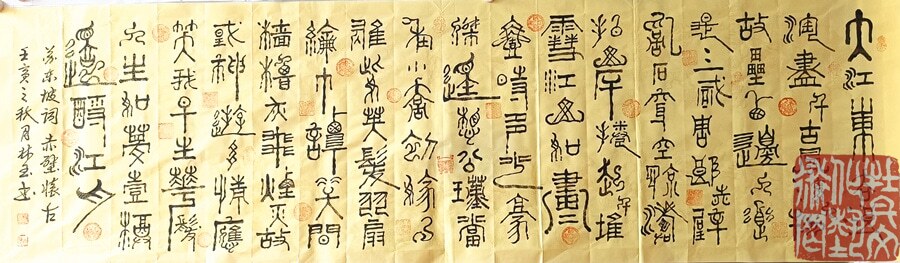 大江東去
淘盡千古
故壘西邊人道
是三國周郎赤壁
亂石穿空驚濤
拍岸捲起千堆
雪江山如畫
壹時多少豪
傑遙想公瑾當
年小喬初嫁了
雄姿英發羽扇
綸巾談笑間
檣櫓灰飛煙滅故
國神遊多情應
笑我早生華髮
人生如夢壹樽
還酹江月
蘇東坡詞赤壁懷古
壬寅之秋月林玉